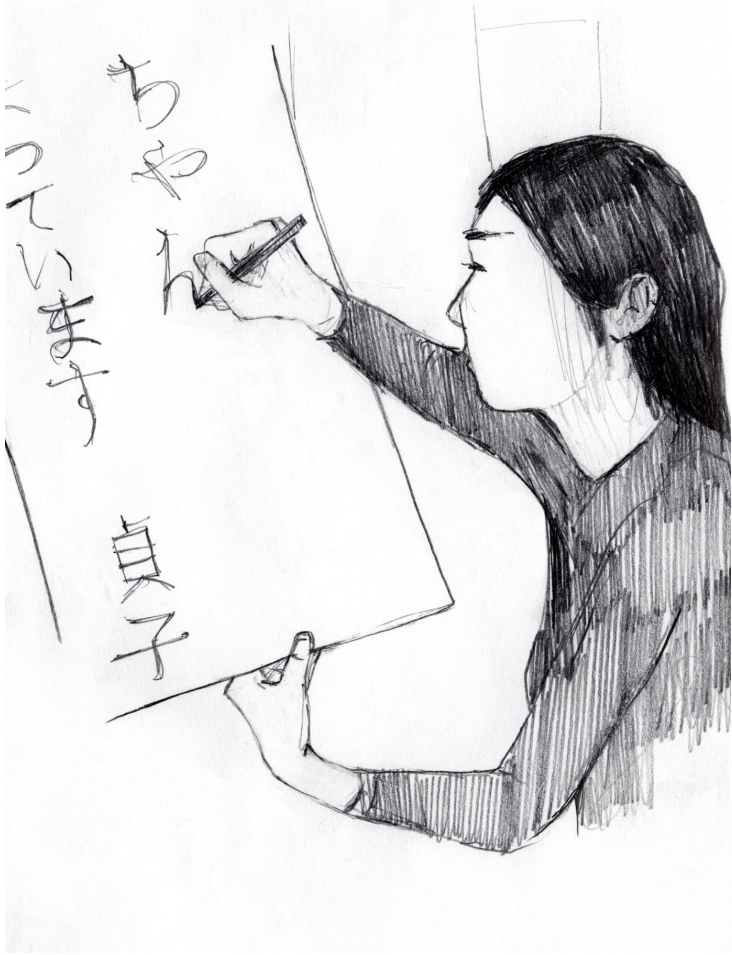 ちゃん
っています 貞子